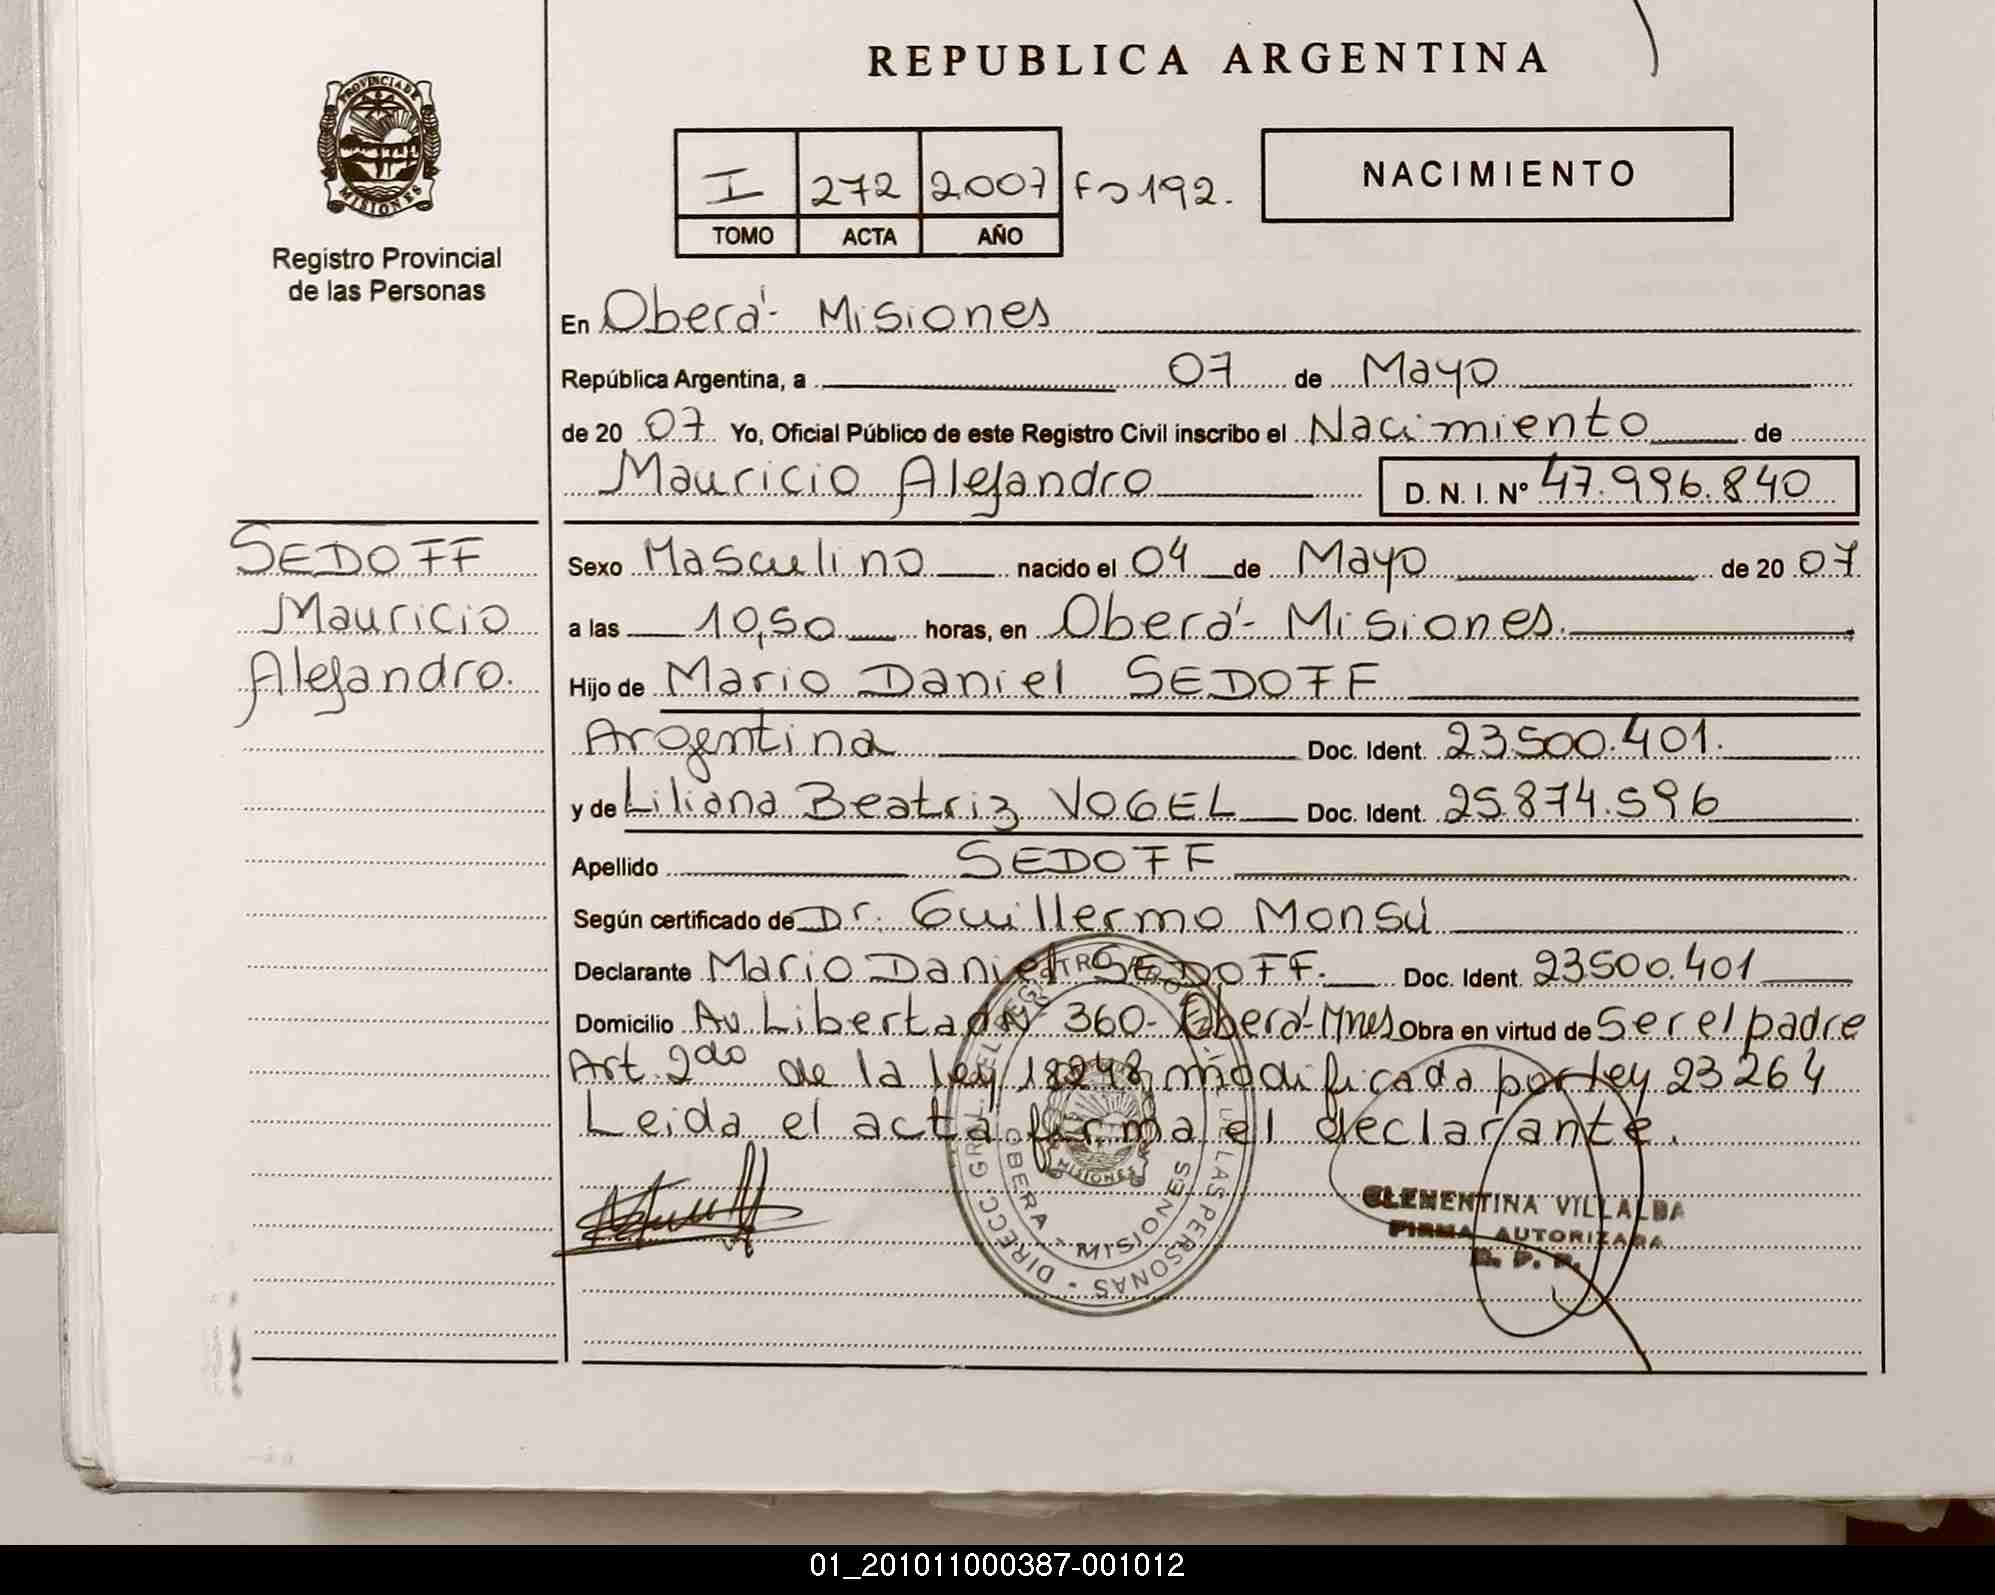 REPUBLICA ARGENTINA
PROVINCIA DE
MISIONES
Registro Provincial
de las Personas
I 272 2007 Fo 192.
TOMO ACTA AÑO
NACIMIENTO
En Oberá - Misiones
República Argentina, a 07 de Mayo
de 20 07 Yo, Oficial Público de este Registro Civil inscribo el Nacimiento de
Mauricio Alejandro D. N. I. Nº 47.996.840
SEDOFF
Mauricio
Alejandro.
Sexo Masculino nacido el 04 de Mayo de 20 07
a las 10,50 horas, en Oberá - Misiones.
Hijo de Mario Daniel SEDOFF
Argentina Doc. Ident. 23.500.401.
y de Liliana Beatriz VOGEL Doc. Ident. 25.874.596
Apellido SEDOFF
Según certificado de Dr. Guillermo Monsú
Declarante Mario Daniel SEDOFF. Doc. Ident. 23500.401
Domicilio Av. Libertad Nº 360 - Oberá - Mnes Obra en virtud de Ser el padre
Art. 2do de la ley 18248 modificada por ley 23264
Leida el acta firma el declarante.
OBERA - MISIONES
MISIONES
CLEMENTINA VILLALBA
FIRMA AUTORIZADA
R. P. P.
01_201011000387-001012